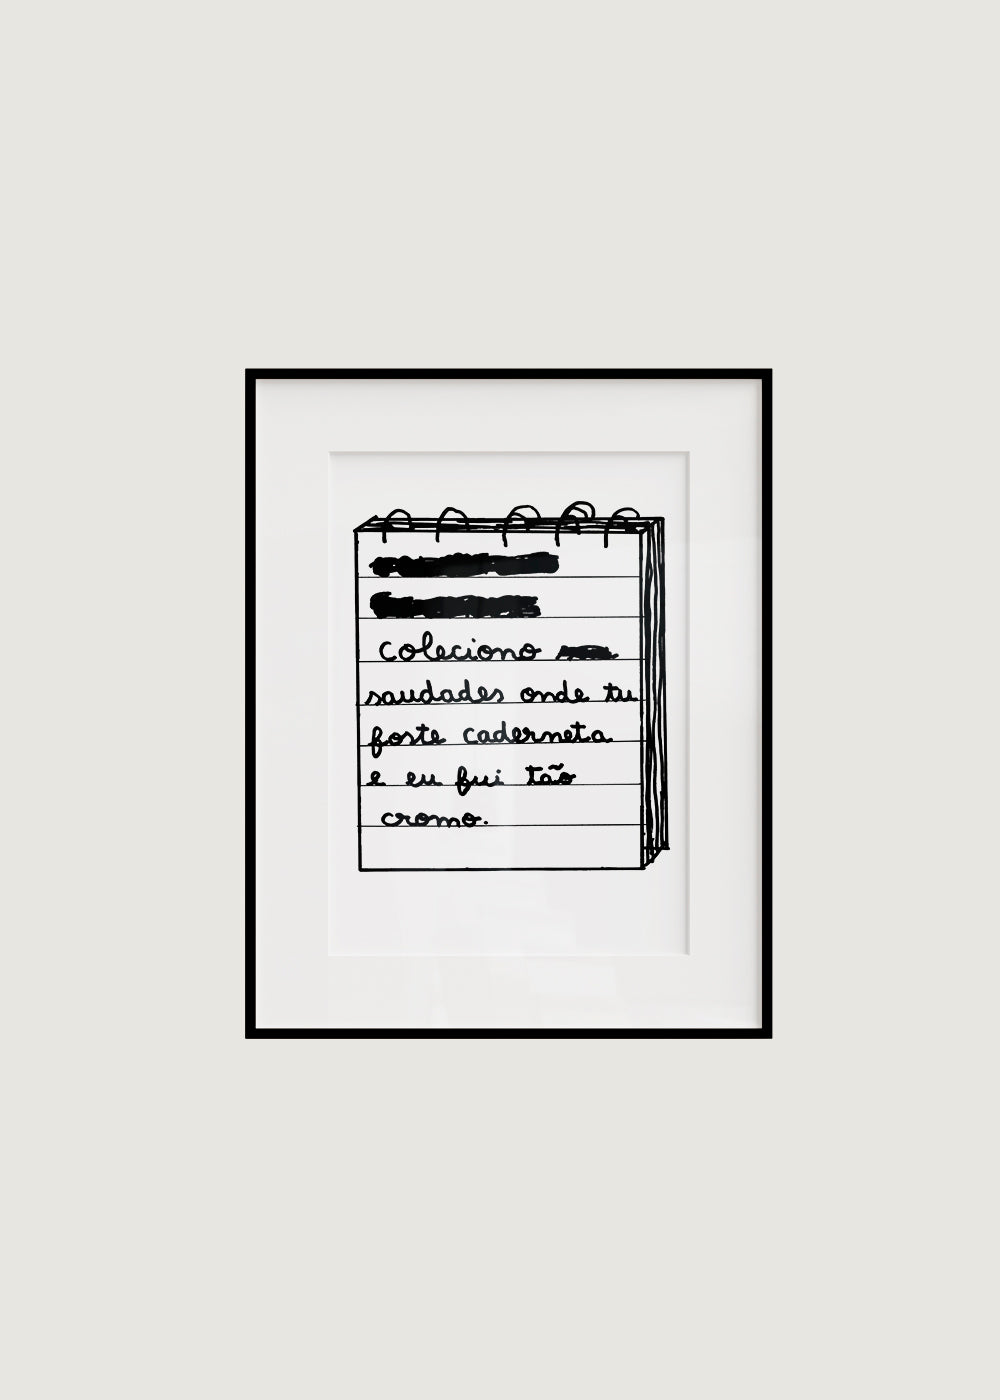 coleciono
saudades onde tu
foste caderneta
e eu fui tão
cromo.